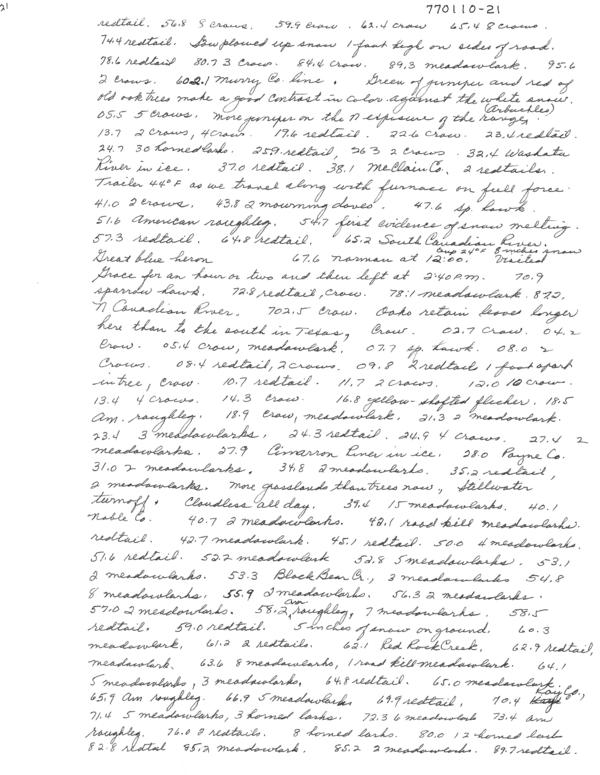 21
770110-21
redtail. 56.8 8 crows. 59.9 crow. 62.4 crow 65.4 8 crows.
74.4 redtail. Gov plowed up snow 1-foot high on sides of road.
78.6 redtail 80.7 3 crow. 84.4 crow. 89.3 meadowlark. 95.6
2 crows. 602.1 Murry Co. line. Green of juniper and red of
old oak trees make a good contrast in color against the white snow.
(Arbuckles)
05.5 5 crows. more juniper on the N exposure of the ranges.
13.7 2 crows, 4 crow. 19.6 redtail. 22.6 crow. 23.4 redtail.
24.7 30 horned larks. 25.9 redtail, 26.3 2 crows. 32.4 Washata
River in ice. 37.0 redtail. 38.1 McClain Co. 2 redtails.
Trailer 44°F as we travel along with furnace on full force.
41.0 2 crows. 43.8 2 mourning doves. 47.6 sp. hawk.
51.6 American roughleg. 54.7 first evidence of snow melting.
57.3 redtail. 64.8 redtail. 65.2 South Canadian River.
24°F 8 inches snow
Great blue heron 67.6 Norman at 12:00. Visited
Grace for an hour or two and then left at 2:40 P.M. 70.9
sparrow hawk. 72.8 redtail, crow. 78.1 meadowlark. 87.2.
N Canadian River. 702.5 crow. Oaks retain leaves longer
here than to the south in Texas, Crow. 02.7 crow. 04.2
crow. 05.4 crow, meadowlark. 07.7 sp. hawk. 08.0 2
crows. 08.4 redtail, 2 crows. 09.8 2 redtail 1 foot apart
in tree, crow. 10.7 redtail. 11.7 2 crows. 12.0 10 crow.
13.4 4 crows. 14.3 crow. 16.8 yellow-shafted flicker. 18.5
Am. roughleg. 18.9 crow, meadowlark. 21.3 2 meadowlark.
23.4 3 meadowlarks. 24.3 redtail. 24.9 4 crows. 27.4 2
meadowlarks. 27.9 Cimarron River in ice. 28.0 Payne Co.
31.0 2 meadowlarks. 34.8 2 meadowlarks. 35.2 redtail,
2 meadowlarks. more grasslands than trees now, Stillwater
turnoff. Cloudless all day. 39.4 15 meadowlarks. 40.1
Noble Co. 40.7 2 meadowlarks. 42.1 road kill meadowlarks.
redtail. 42.7 meadowlark. 45.1 redtail. 50.0 4 meadowlarks.
51.6 redtail. 52.2 meadowlark 52.8 5 meadowlarks. 53.1
2 meadowlarks. 53.3 Black Bear Cr., 3 meadowlarks 54.8
8 meadowlarks. 55.9 2 meadowlarks. 56.3 2 meadowlarks.
57.0 2 meadowlarks. 58.2 am roughleg, 7 meadowlarks. 58.5
redtail. 59.0 redtail. 5 inches of snow on ground. 60.3
meadowlark, 61.2 2 redtails. 62.1 Red Rock Creek, 62.9 redtail,
meadowlark. 63.6 8 meadowlarks, 1 road kill meadowlark. 64.1
5 meadowlarks, 3 meadowlarks, 64.8 redtail. 65.0 meadowlark.
65.9 Am roughleg. 66.9 5 meadowlarks 69.9 redtail, 70.4 Kay Co.,
71.4 5 meadowlarks, 3 horned larks. 72.3 6 meadowlark 73.4 am
roughleg. 76.0 2 redtails. 8 horned larks. 80.0 12 horned lark
82.8 redtail 85.2 meadowlark. 85.2 2 meadowlarks. 89.7 redtail.